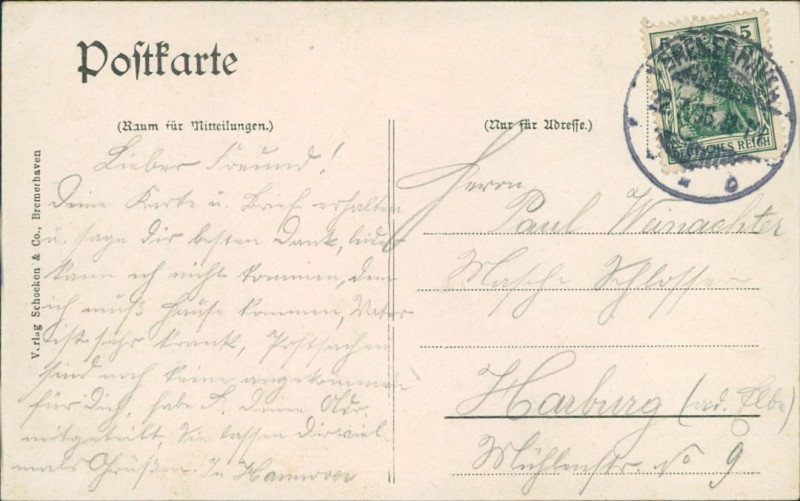 Postkarte
(Raum für Mitteilungen.)
Lieber Freund!
Deine Karte u. Brief erhalten
u. sage dir besten Dank, leider
kann ich nicht kommen, denn
ich muß Hause kommen, Vater
ist sehr krank, Postsachen
sind noch keine angekommen
für Dich, habe Deine Adr.
mitgeteilt. Sie lassen Dir viel-
mals Grüßen. In Hannover
Verlag Schocken & Co., Bremerhaven
(Nur für Adresse.)
5 5
DEUTSCHES REICH
Herrn
Paul Weinachter
Masch Schlosser
Harburg (ad. Elbe)
Mühlenstr. No 9